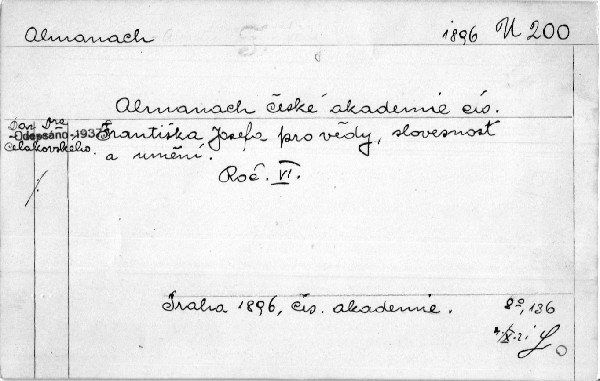 Almanach 1896 U 200
Almanach české akademie cís.
Dar Dra
Odepsáno-1937 Františka Josefa pro vědy, slovesnost
Čelakovského.
a umění.
Roč. VI.
Praha 1896, čís. akademie. 8º, 136